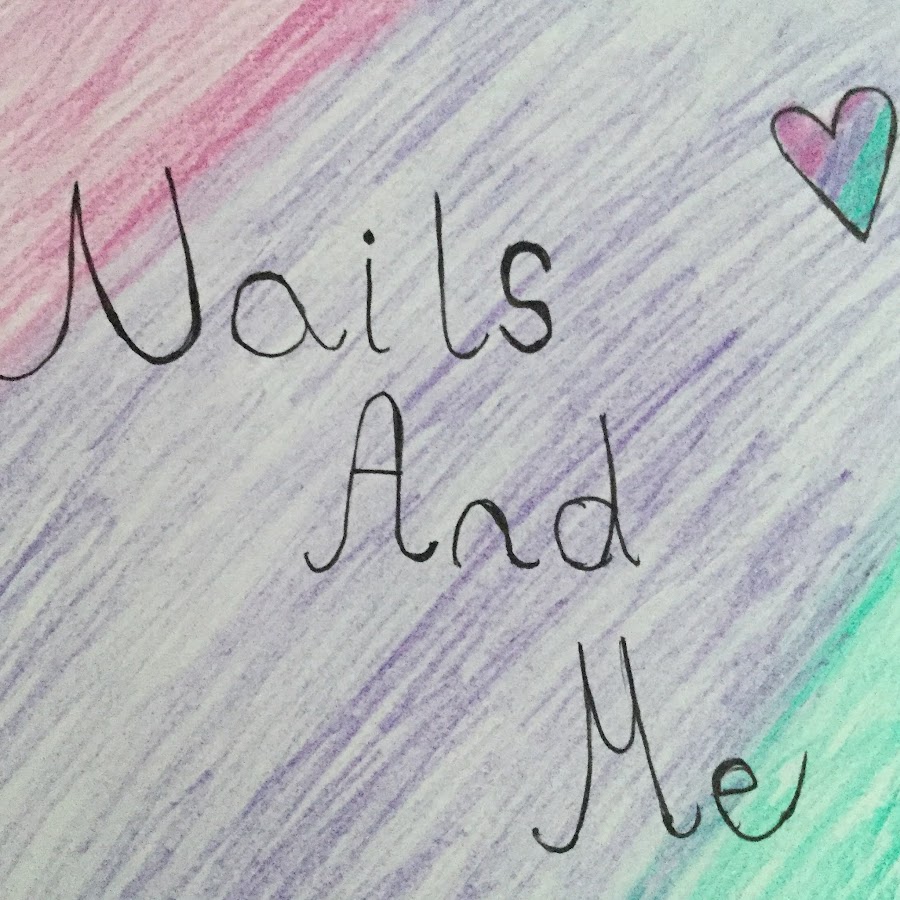 Nails
And
Me